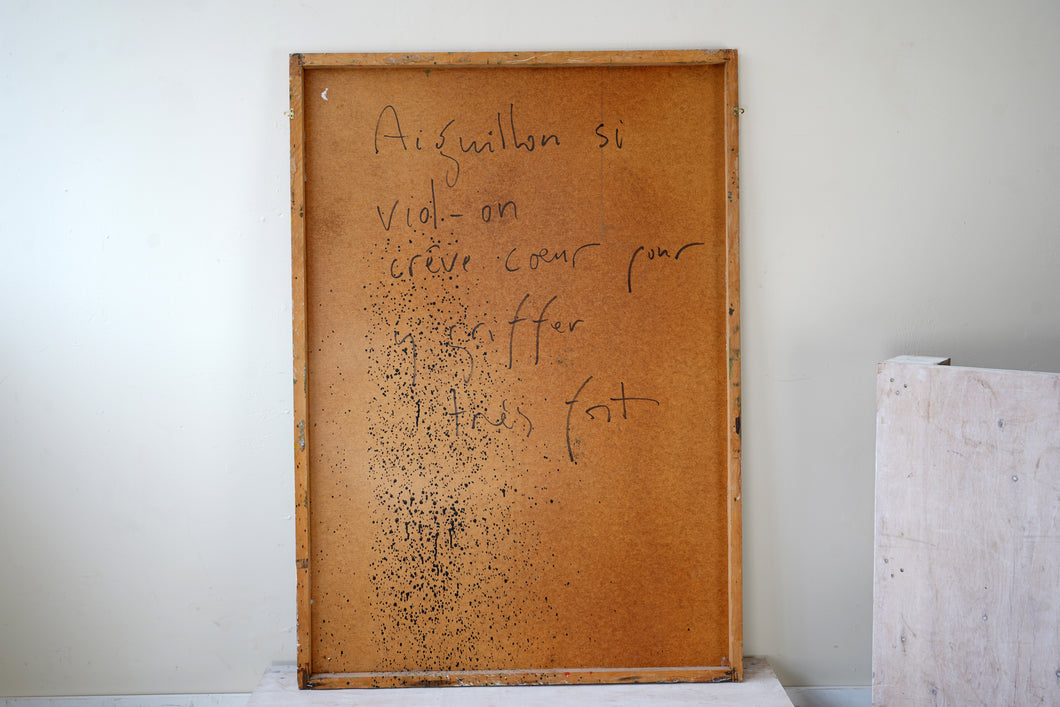 Aiguillon si
viol-on
crêve cœur pour
y griffer
très fort